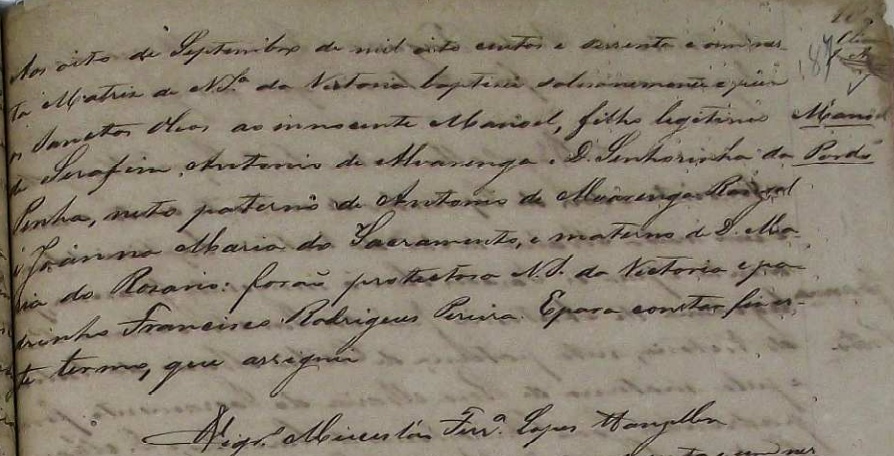 Aos oito de Septembro de mil oito centos e sessenta e um nes-
ta Matriz de N. Sª da Victoria baptisei solemnemente e puz
os Sanctos Oleos ao innocente Manoel, filho legitimo
de Serafim Antonio de Alvarenga e D. Senhorinha da
Penha, neto paterno de Antonio de Alvarenga Rangel
e Joanna Maria do Sacramento, e materno de D. Ma
ria do Rosario: forão protectora N. S. da Victoria e pa
drinho Francisco Rodrigues Pereira. E para constar fiz es-
te termo, que assignei
Manoel
Pardo
Vigrº Ferrª Lopes